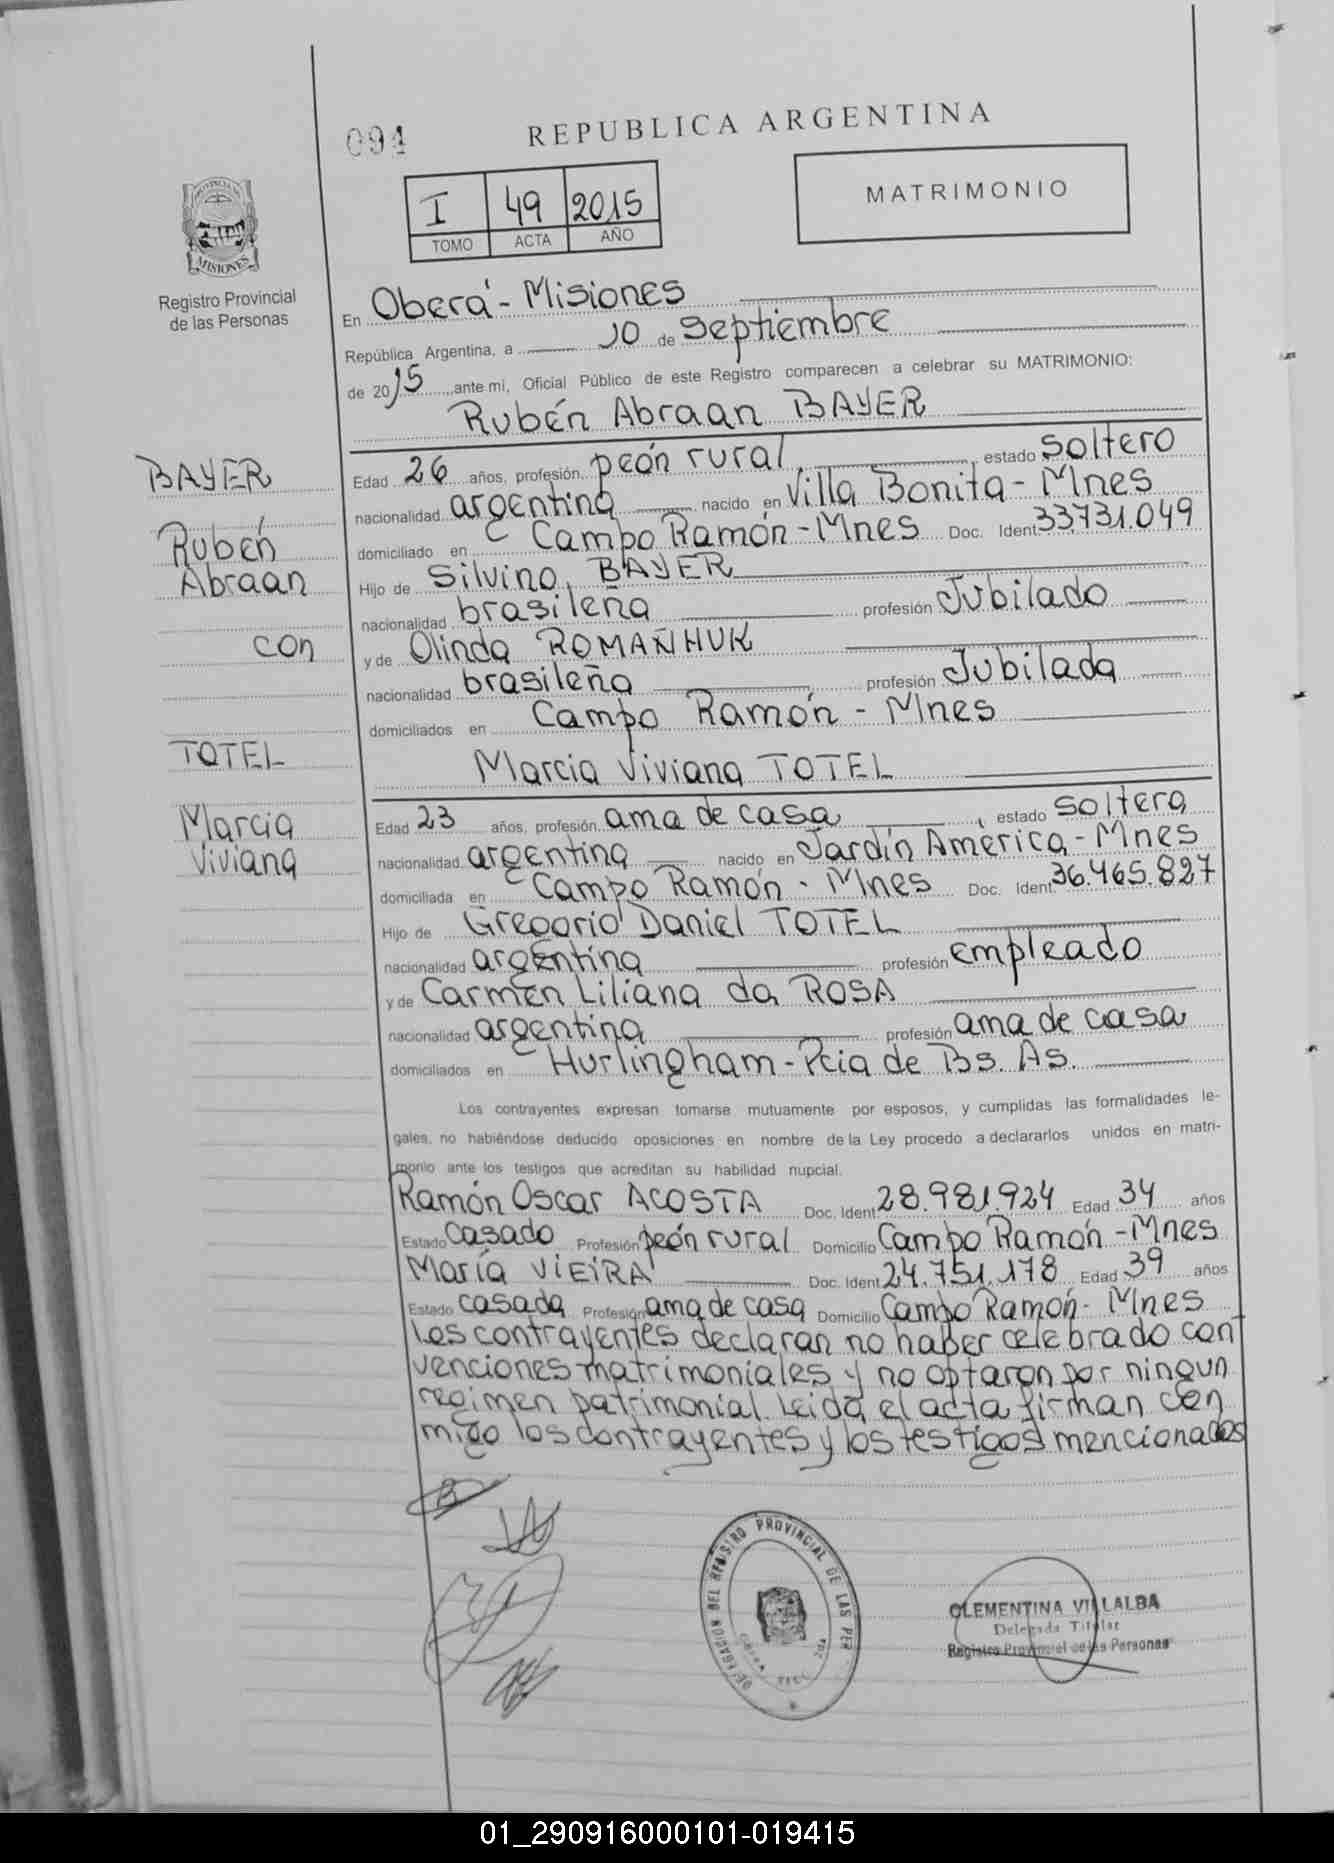 094
REPUBLICA ARGENTINA
I 49 2015
TOMO ACTA AÑO
MATRIMONIO
PROVINCIA DE
MISIONES
Registro Provincial
de las Personas
En Oberá - Misiones
República Argentina, a 10 de septiembre
de 2015 ante mi, Oficial Público de este Registro comparecen a celebrar su MATRIMONIO:
Rubén Abraan BAYER
Edad 26 años, profesión peón rural, estado soltero
nacionalidad argentina nacido en Villa Bonita - Mnes
domiciliado en Campo Ramón - Mnes Doc. Ident 33.731.049
Hijo de Silvino, BAYER
nacionalidad brasileña profesión Jubilado
y de Olinda ROMAÑHUK
nacionalidad brasileña profesión Jubilada
domiciliados en Campo Ramón - Mnes
Marcia Viviana TOTEL
Edad 23 años, profesión ama de casa, estado soltera
nacionalidad argentina nacido en Jardín América - Mnes
domiciliada en Campo Ramón - Mnes Doc. Ident 36.465.827
Hijo de Gregorio Daniel TOTEL
nacionalidad argentina profesión empleado
y de Carmen Liliana da ROSA
nacionalidad argentina profesión ama de casa
domiciliados en Hurlingham - Pcia de Bs. As.
Los contrayentes expresan tomarse mutuamente por esposos, y cumplidas las formalidades le-
gales, no habiéndose deducido oposiciones en nombre de la Ley procedo a declararlos unidos en matri-
monio ante los testigos que acreditan su habilidad nupcial.
Ramón Oscar ACOSTA Doc. Ident 28.981.924 Edad 34 años
Estado casado Profesión peón rural Domicilio Campo Ramón - Mnes
María VIEIRA Doc. Ident 24.751.178 Edad 39 años
Estado casada Profesión ama de casa Domicilio Campo Ramón - Mnes
Los contrayentes declaran no haber celebrado con
venciones matrimoniales y no optaron por ningun
regimen patrimonial. Leida el acta firman con
migo los contrayentes y los testigos mencionados
BAYER
Rubén
Abraan
con
TOTEL
Marcia
Viviana
DELEGACION DEL REGISTRO PROVINCIAL DE LAS PER
CLEMENTINA VILLALBA
Delegada Titular
Registro Provincial de las Personas
01_290916000101-019415